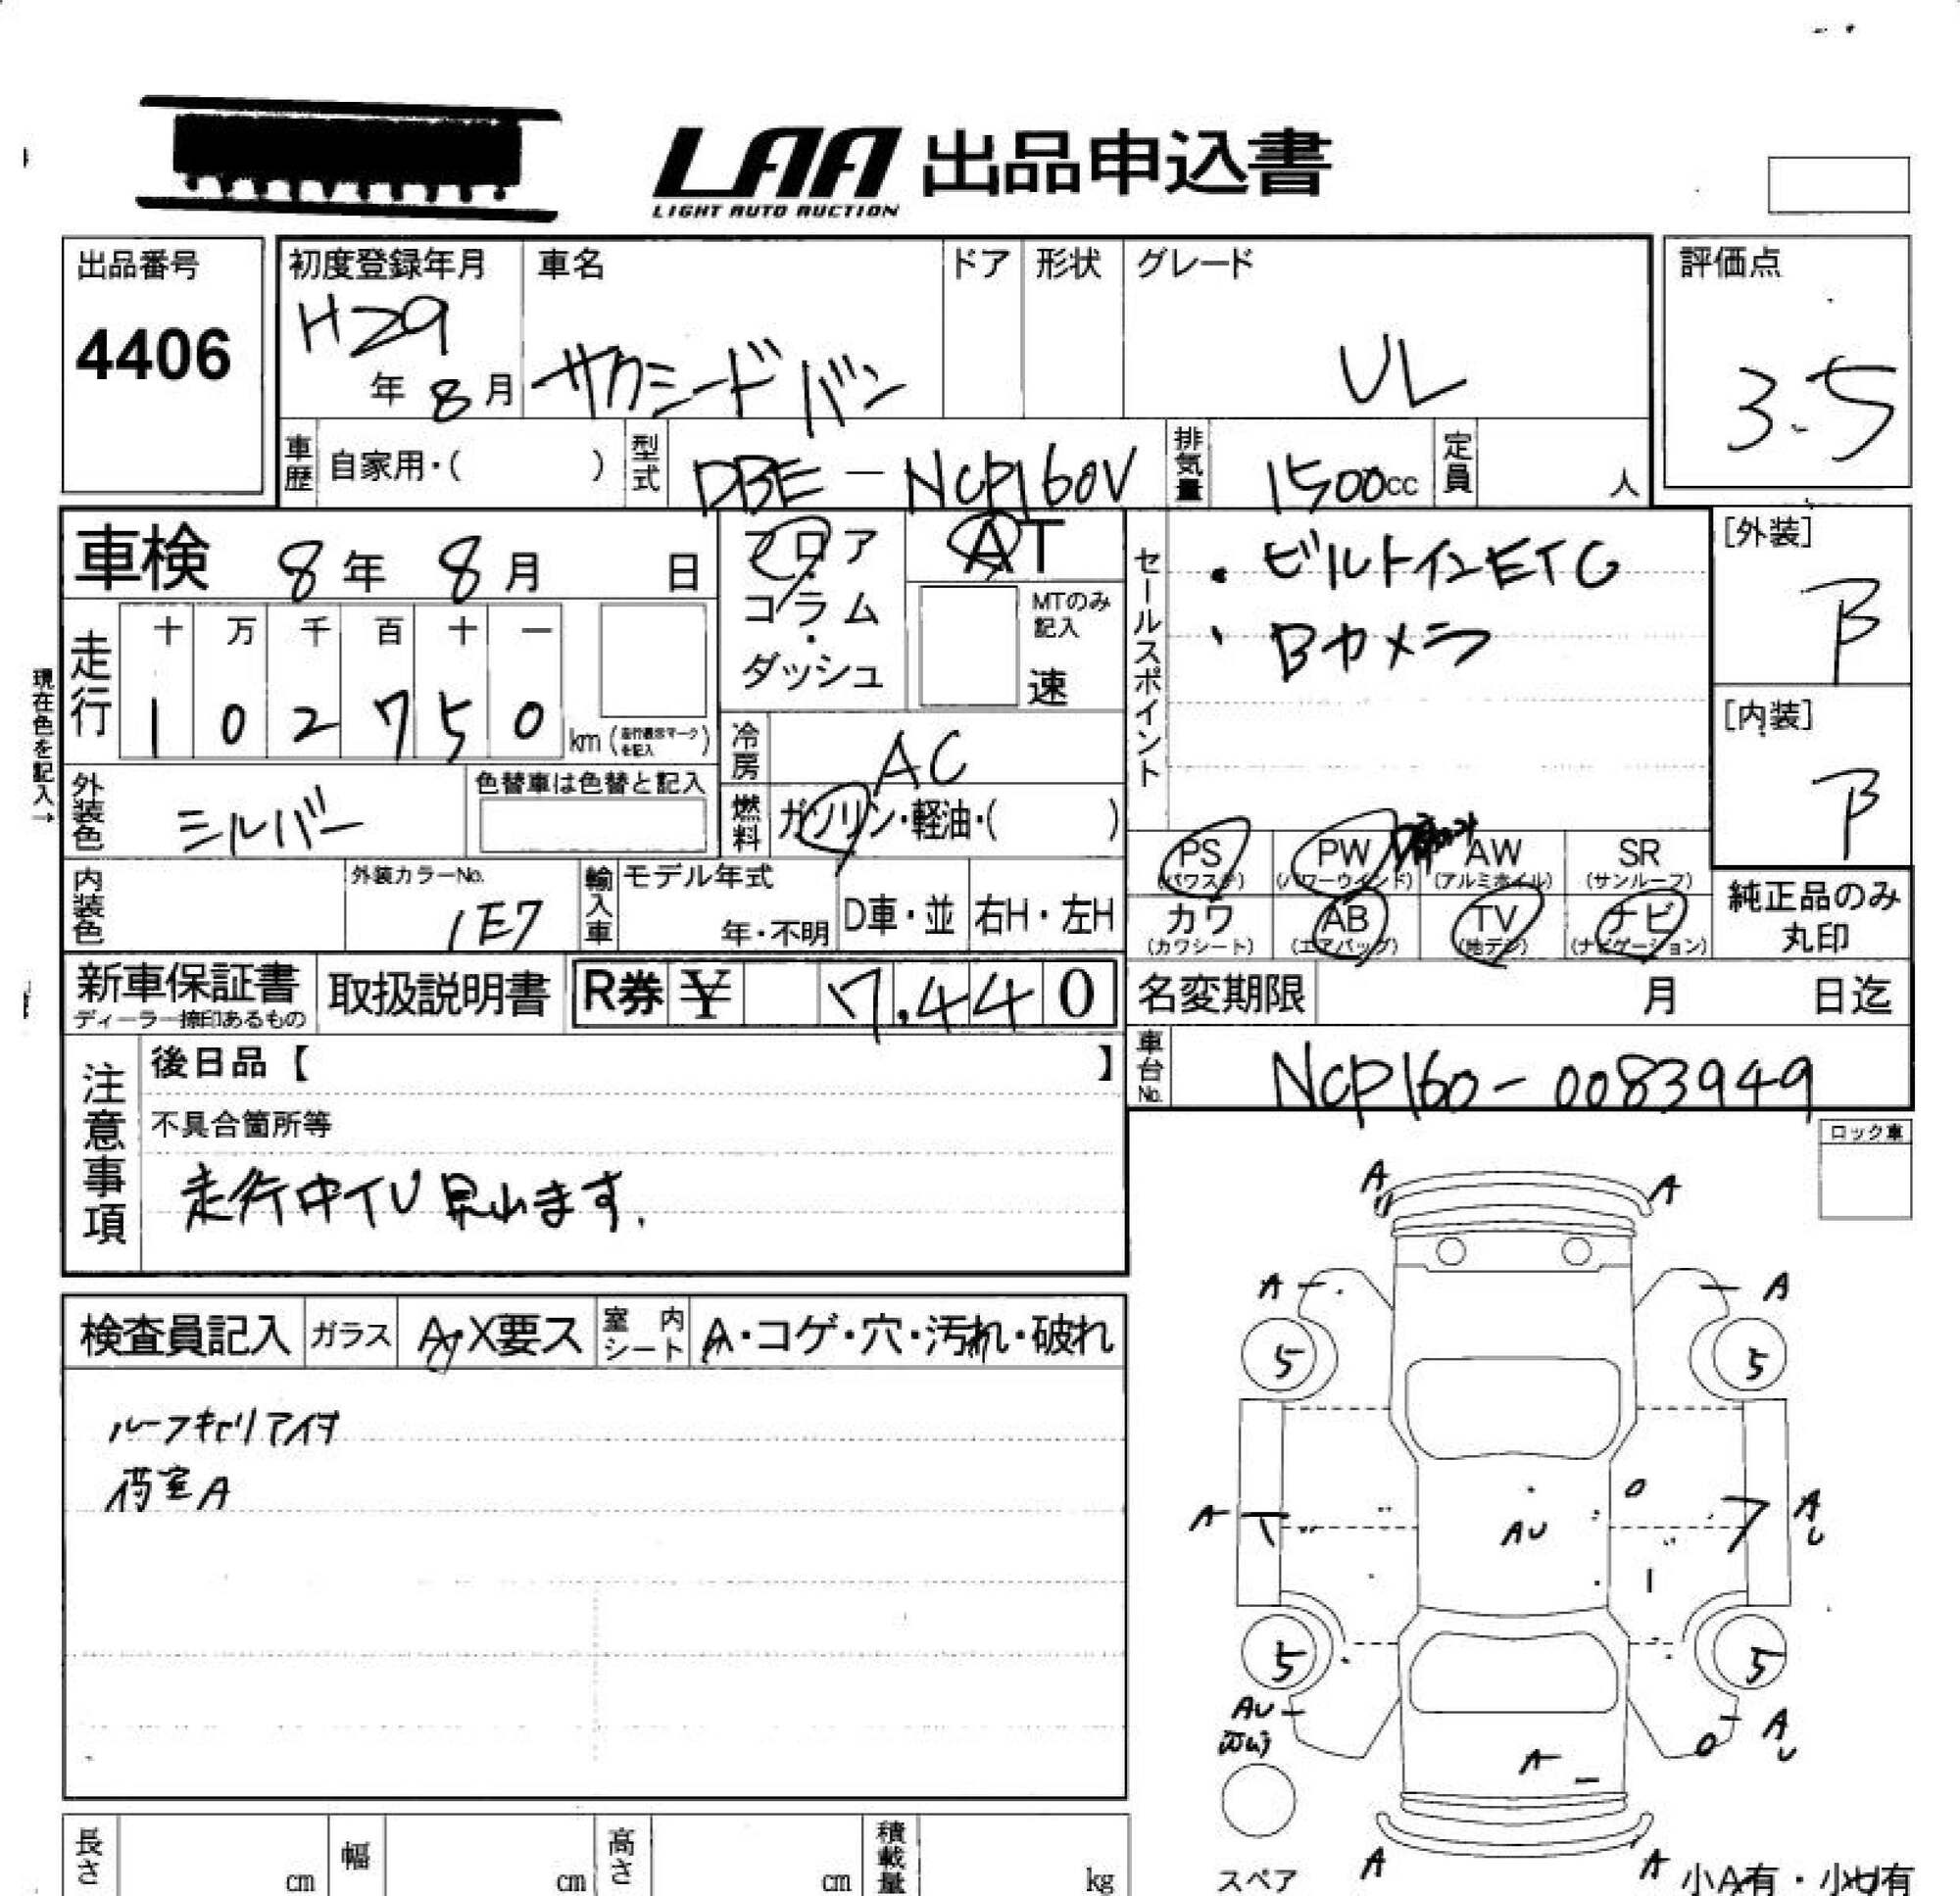 LAA 出品申込書
LIGHT AUTO AUCTION
出品番号
4406
初度登録年月
H29
年 8 月
車名
サクシードバン
ドア
形状
グレード
UL
評価点
3.5
車歴
自家用・( )
型式
DBE-NCP160V
排気量
1500cc
定員
人
車検 8年 8月 日
フロア
・
コラム
・
ダッシュ
AT
MTのみ
記入
速
セールスポイント
・ビルトインETC
・Bカメラ
[外装]
B
[内装]
B
現在色を記入→
走行
十 万 千 百 十 一
1 0 2 7 5 0
km(走行表示マークを記入)
冷房
AC
外装色
シルバー
色替車は色替と記入
燃料
ガソリン・軽油・( )
PS
(パワステ)
PW
(パワーウインド)
AW
(アルミホイル)
SR
(サンルーフ)
カワ
(カワシート)
AB
(エアバッグ)
TV
(地デジ)
ナビ
(ナビゲーション)
純正品のみ
丸印
内装色
外装カラーNo.
1E7
輸入車
モデル年式
年・不明
D車・並
右H・左H
新車保証書
ディーラー捺印あるもの
取扱説明書
R券 ¥ 7,440
名変期限 月 日迄
車台No.
NCP160-0083949
注意事項
後日品【 】
不具合箇所等
走行中TV見れます.
ロック車
検査員記入
ガラス
A・X要ス
室内シート
A・コゲ・穴・汚れ・破れ
ルーフキャリア付
荷室A
A A
A A
5 5
A AU AU
5 5
AU
AU
A
A A
スペア
小A有・小U有
長さ cm
幅 cm
高さ cm
積載量 kg